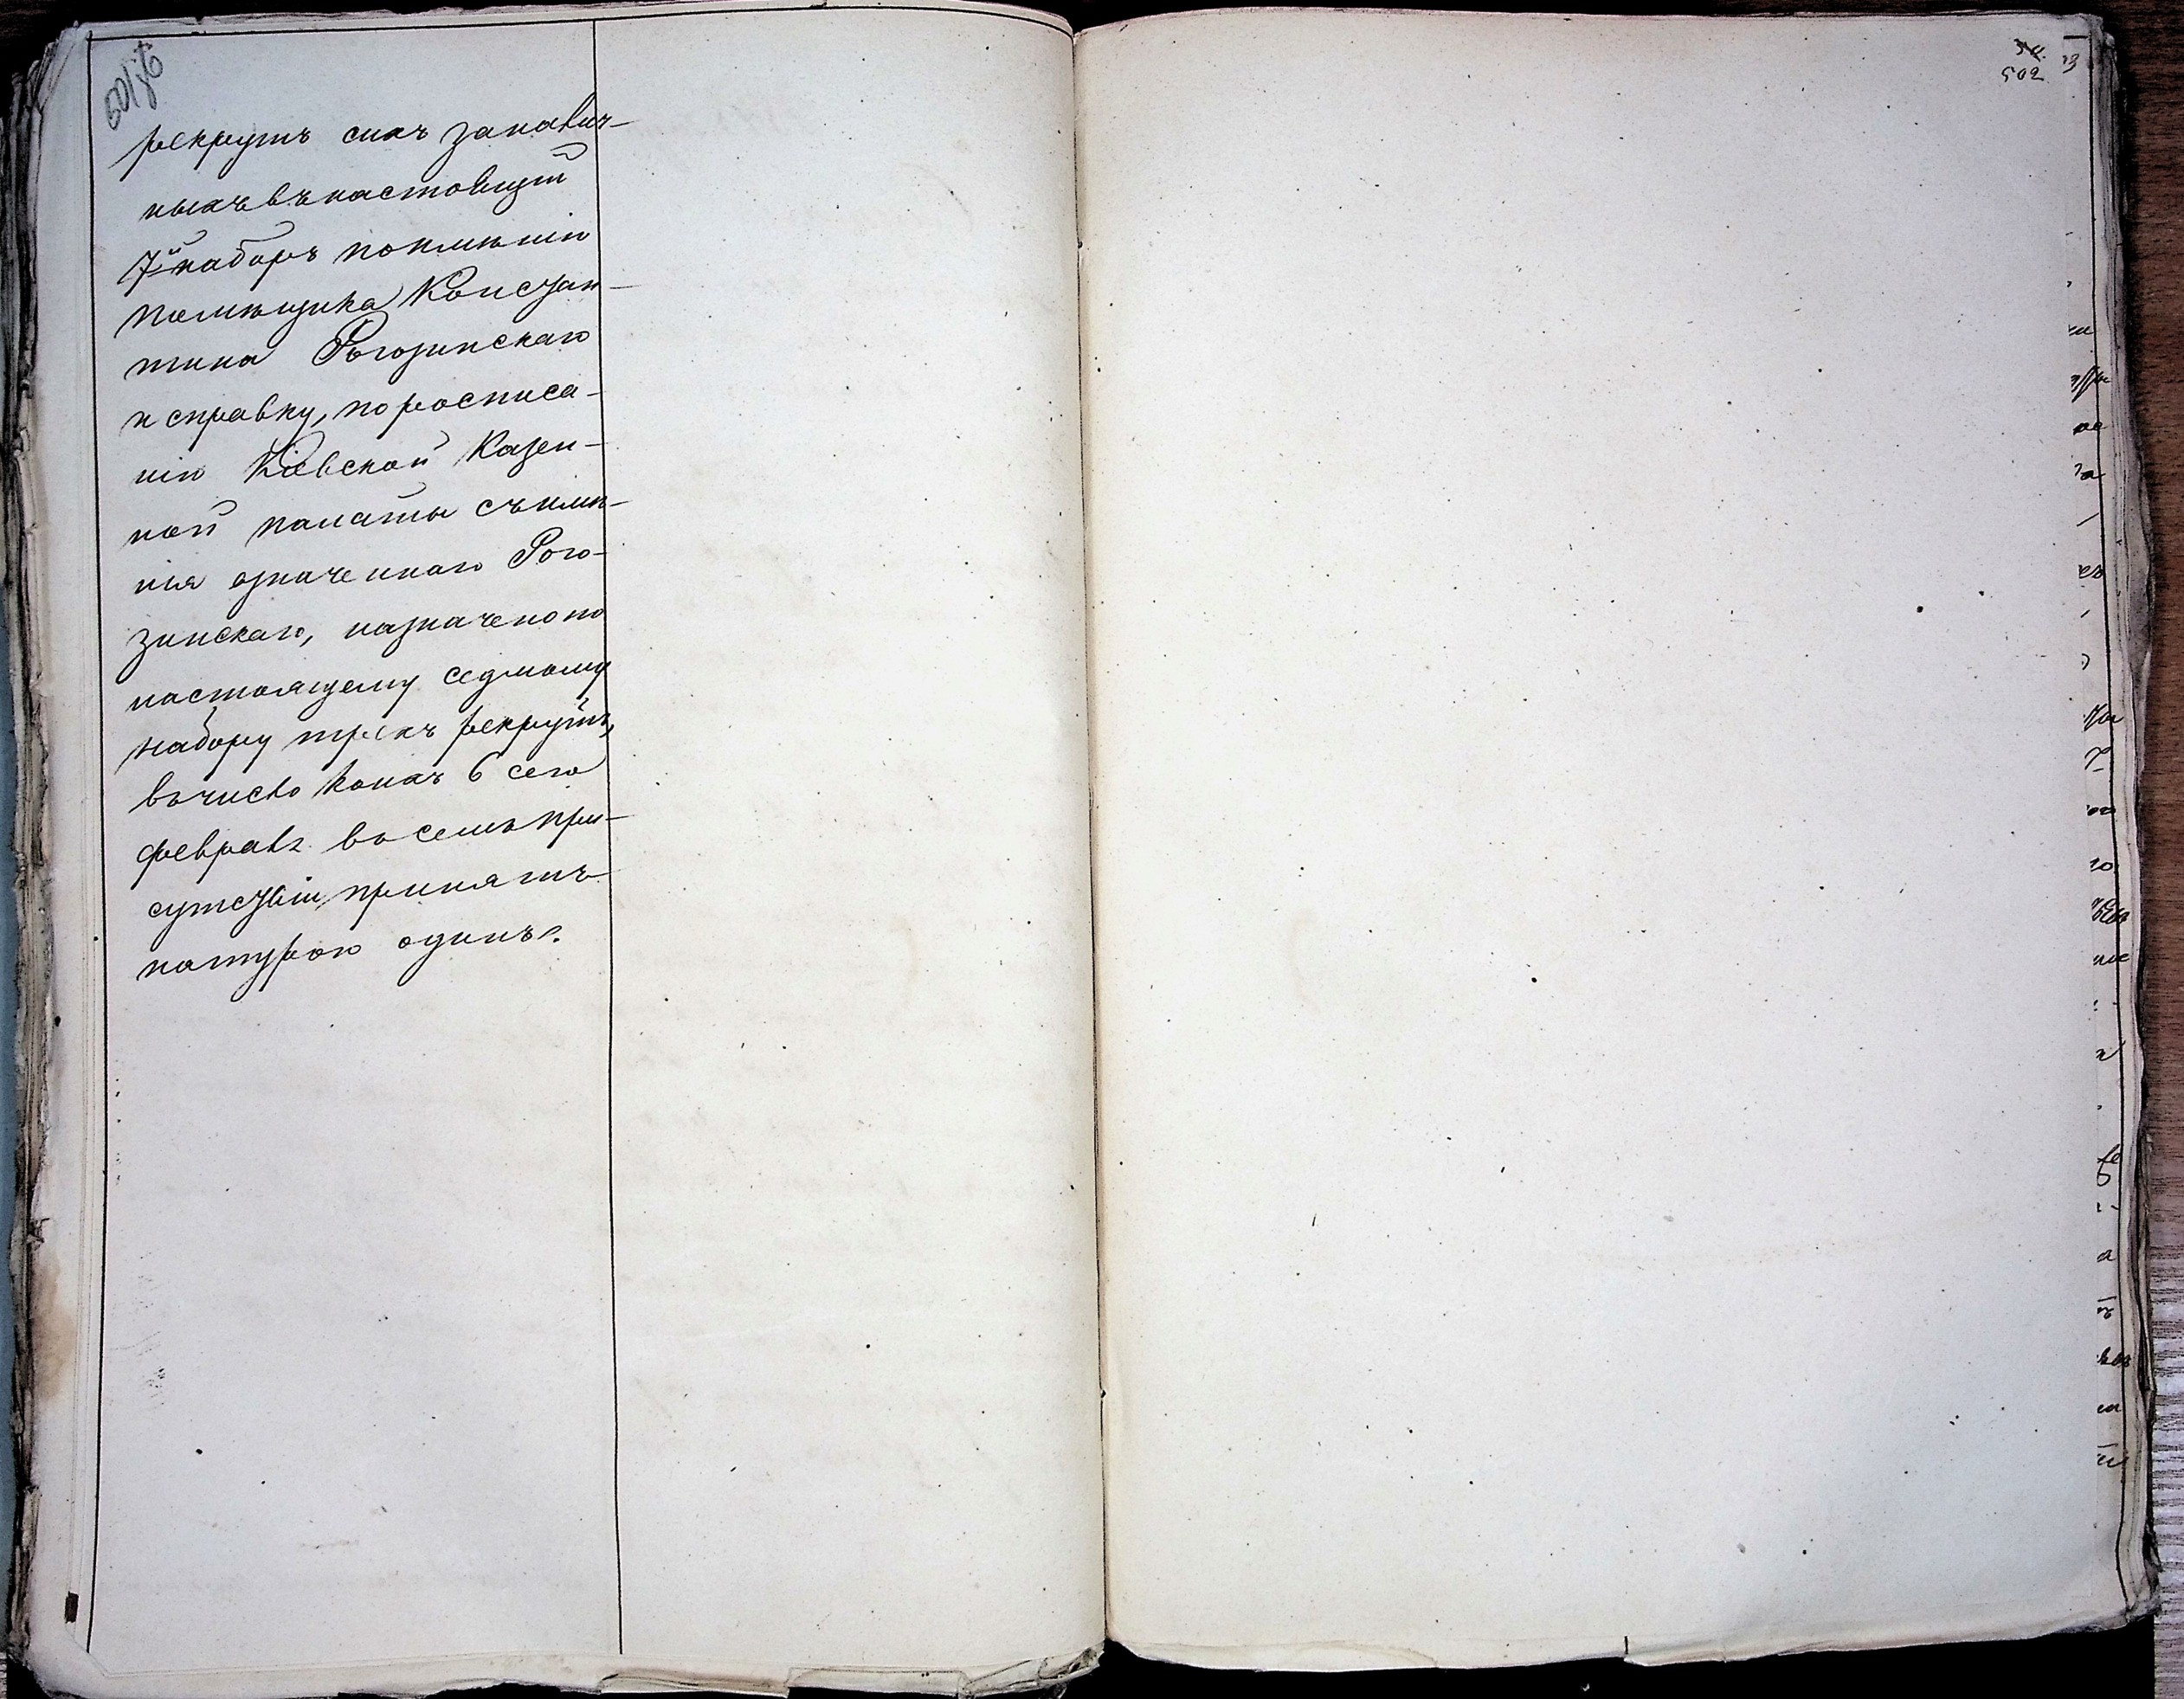 501/об
рекрутъ сихъ за налич-
ныхъ въ настоящій
7й наборъ по имѣнію
помѣщика Констан-
тина Рогозинскаго
и справку, по росписа-
нію Кіевской Казен-
ной палаты съ имѣ-
нія означеннаго Рого-
зинскаго, назначено по
настоящему седмому
набору трехъ рекрутъ,
въ число коихъ 6 сего
февраля въ семъ при-
сутствіи принятъ
натурою одинъ.
502